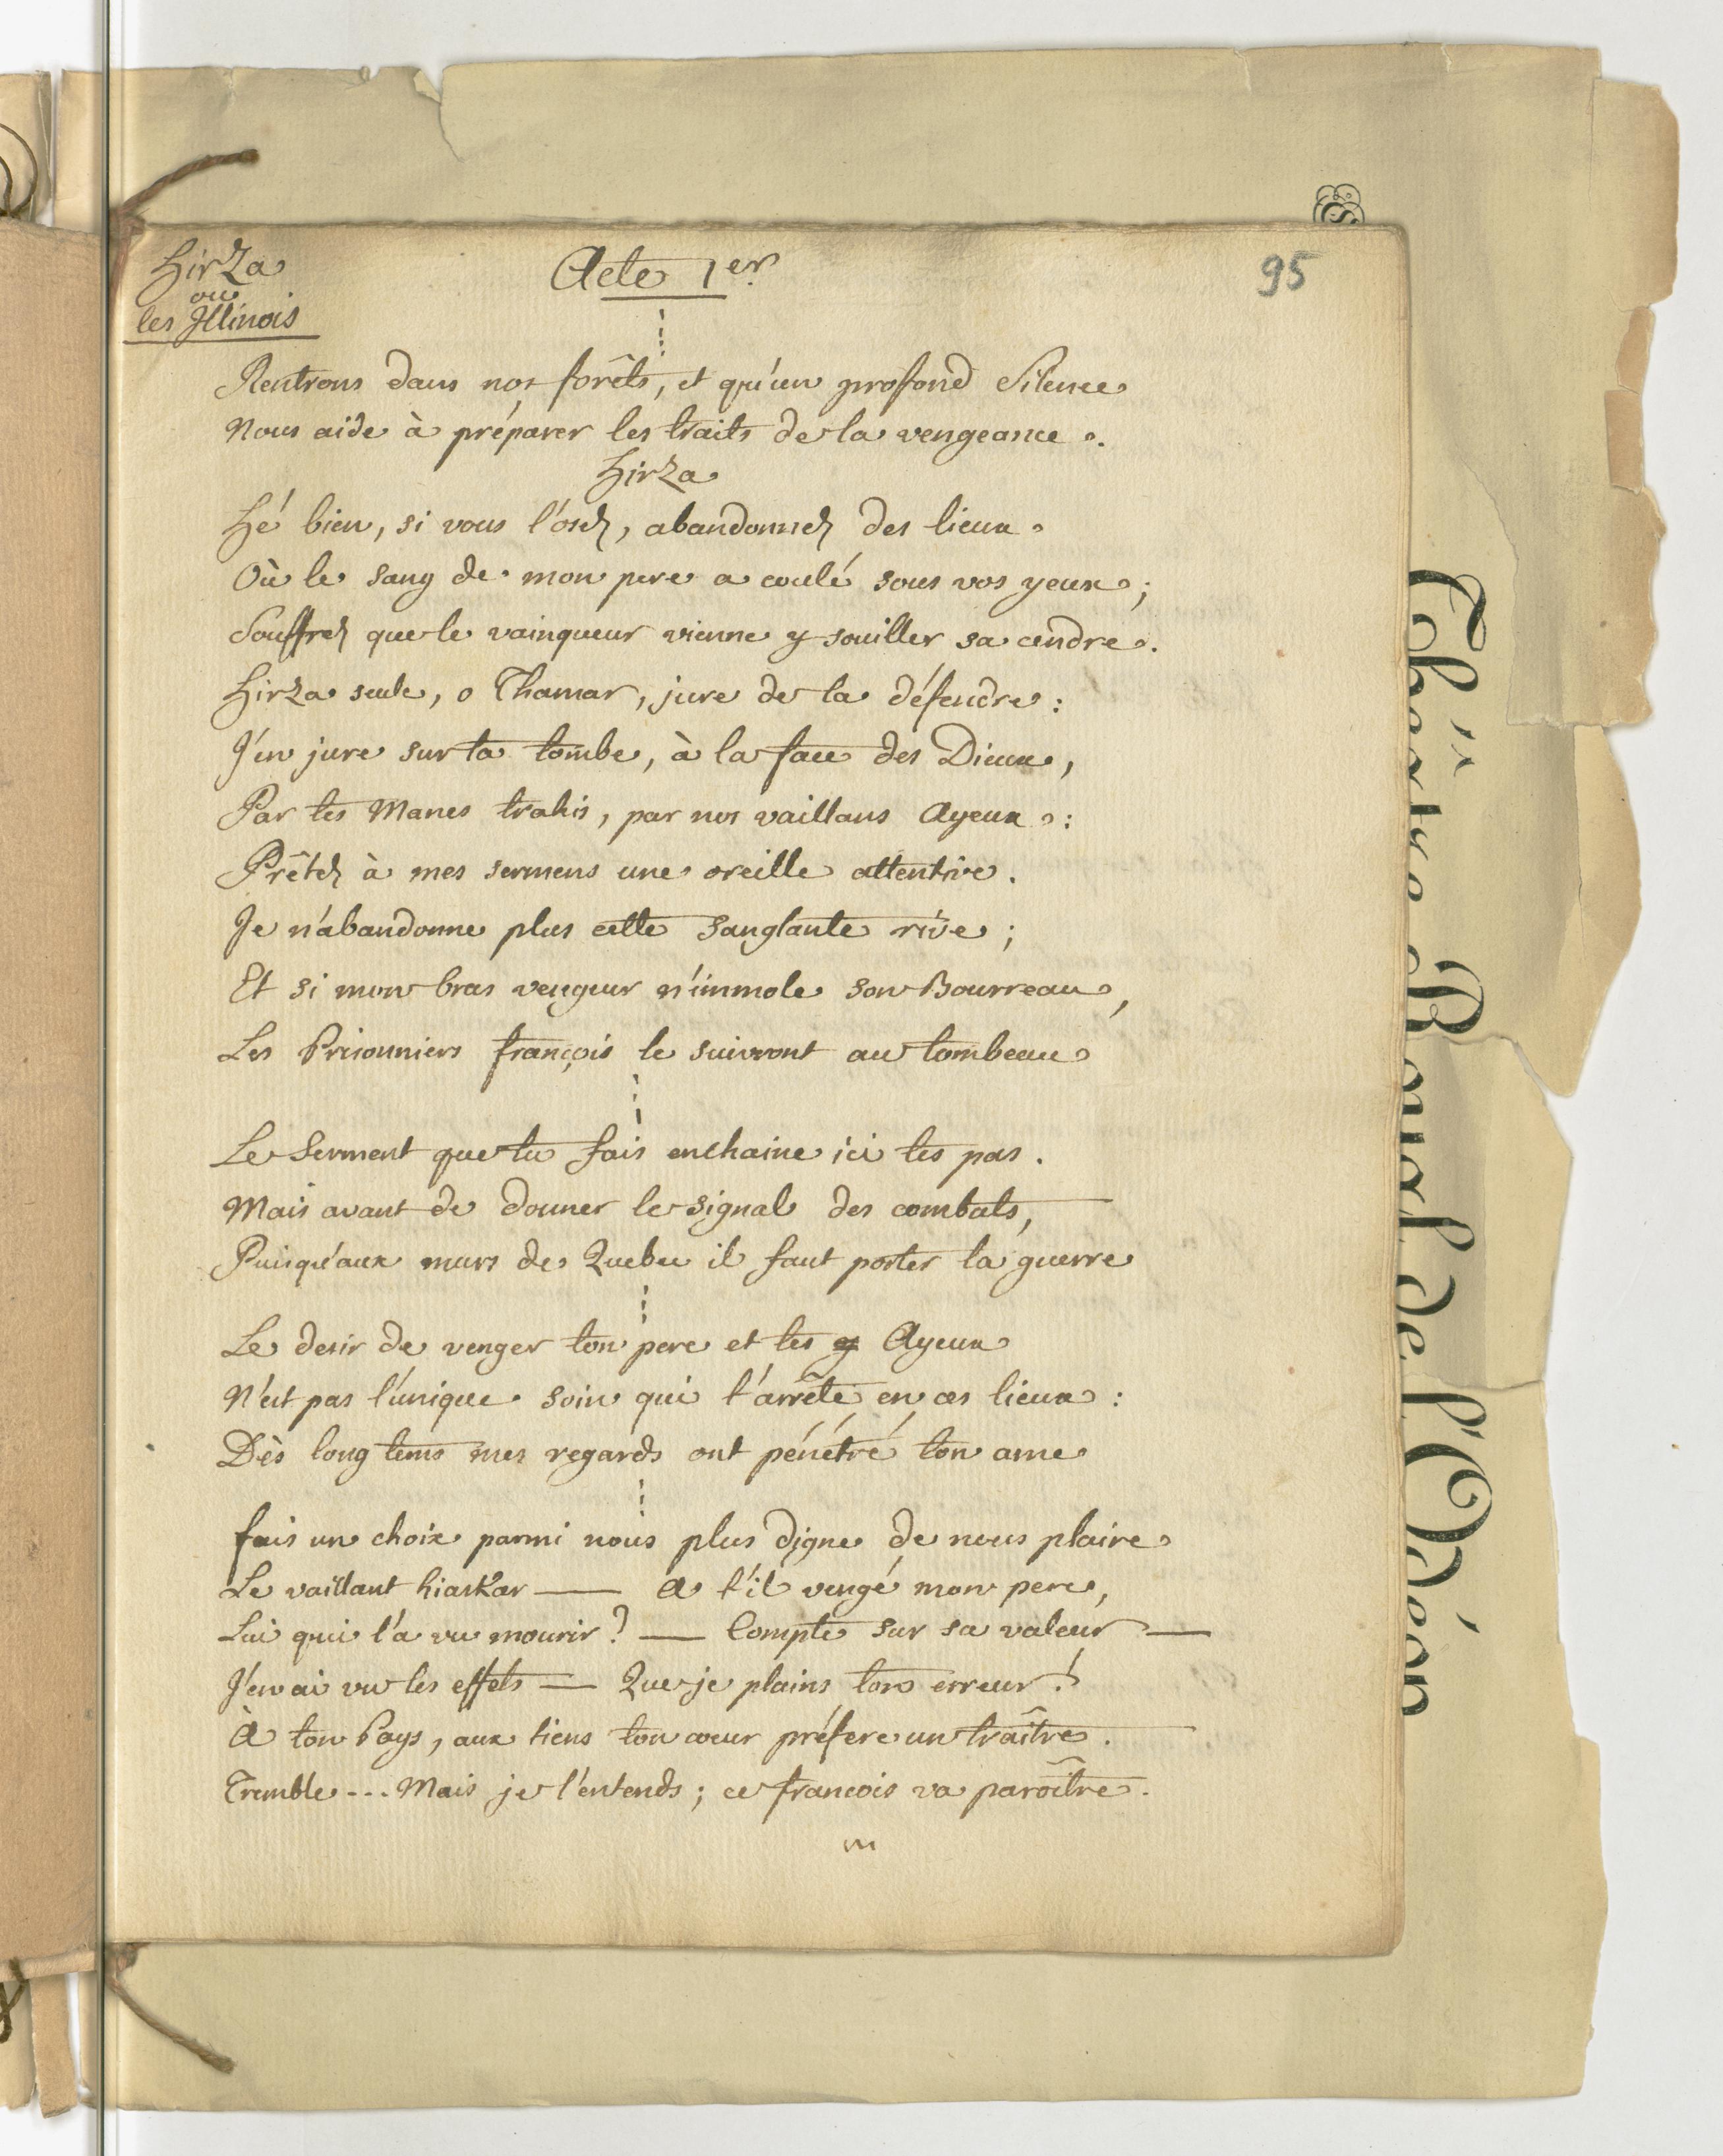 Hirza
ou
les Illinois
Acte 1er
95
Rentrons dans nos forêts, et qu'un profond silence
Nous aide à préparer les traits de la vengeance.
Hirza
Hé bien, si vous l'osez, abandonnez des lieux
Où le sang de mon pere a coulé sous vos yeux;
Souffrez que le vainqueur vienne y souiller sa cendre.
Hirza seule, o Thamar, jure de la défendre:
J'en jure sur ta tombe, à la face des Dieux,
Par tes Manes trahis, par nos vaillans Ayeux:
Prêtez à mes sermens une oreille attentive.
Je n'abandonne plus cette sanglante rive;
Et si mon bras vengeur n'immole son Bourreau,
Les Prisonniers françois le suivront au tombeau
Le Serment que tu fais enchaine ici tes pas.
Mais avant de donner le signal des combats,
Puisqu'aux murs de Quebec il faut porter la guerre
Le desir de venger ton pere et tes Ayeux
N'est pas l'unique soin qui t'arrête en ces lieux:
Dès long tems mes regards ont pénétré ton ame
fais un choix parmi nous plus digne de nous plaire
Le vaillant hiaskar — A t'il vengé mon pere,
Lui qui l'a vu mourir? — Compte sur sa valeur —
J'en ai vu les effets — Que je plains ton erreur!
A ton Pays, aux tiens ton cœur préfere un traître.
Tremble... Mais je l'entends; ce francois va paroître.
Théâtre Royal de l'Odéon